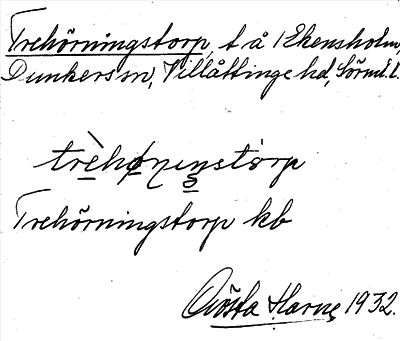 Trehörningstorp, t å 1 Ekensholm,
Dunkers sn, Villåttinge hd, Sörml. l.
trèhø̹nɩnstorp
Trehörningstorp kb
Gösta Harne 1932.